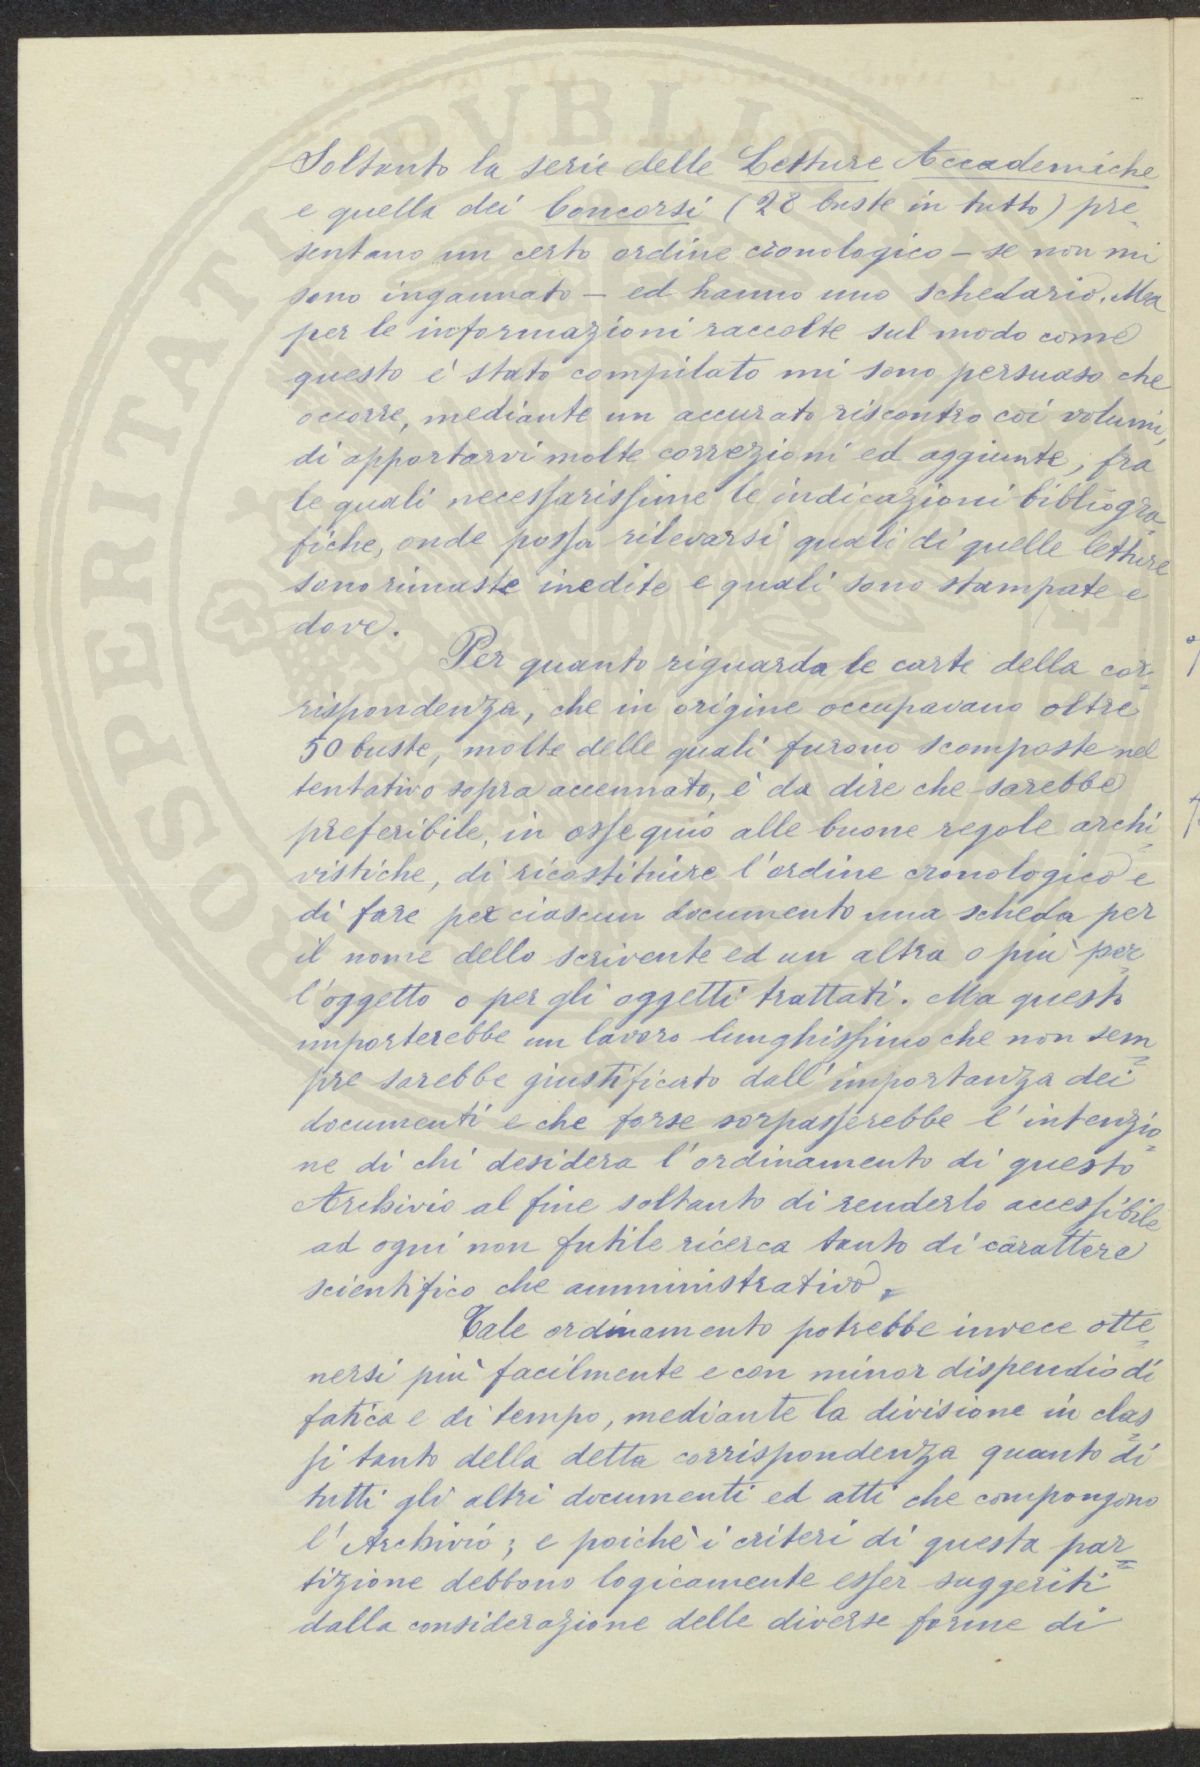 Soltanto la serie delle Letture Accademiche
e quella dei Concorsi (28 buste in tutto) pre=
sentano un certo ordine cronologico – se non mi
sono ingannato – ed hanno uno schedario. Ma
per le informazioni raccolte sul modo come
questo è stato compilato mi sono persuaso che
occorre, mediante un accurato riscontro coi volumi,
di apportarvi molte correzioni ed aggiunte, fra
le quali necessarissime le indicazioni bibliogra=
fiche, onde possa rilevarsi quali di quelle letture
sono rimaste inedite e quali sono stampate e
dove.
Per quanto riguarda le carte della cor=
rispondenza, che in origine occupavano oltre
50 buste, molte delle quali furono scomposte nel
tentativo sopra accennato, è da dire che sarebbe
preferibile, in ossequio alle buone regole archi=
vistiche, di ricostituire l'ordine cronologico e
di fare per ciascun documento una scheda per
il nome dello scrivente ed un altra o più per
l'oggetto o per gli oggetti trattati. Ma questo
importerebbe un lavoro lunghissimo che non sem=
pre sarebbe giustificato dall'importanza dei
documenti e che forse sorpasserebbe l'intenzio=
ne di chi desidera l'ordinamento di questo
Archivio al fine soltanto di renderlo accessibile
ad ogni non futile ricerca tanto di carattere
scientifico che amministrativo.
Tale ordinamento potrebbe invece otte=
nersi più facilmente e con minor dispendio di
fatica e di tempo, mediante la divisione in clas=
si tanto della detta corrispondenza quanto di
tutti gli altri documenti ed atti che compongono
l'Archivio; e poichè i criteri di questa par=
tizione debbono logicamente esser suggeriti
dalla considerazione delle diverse forme di
PROSPERITATI PVBLICAE